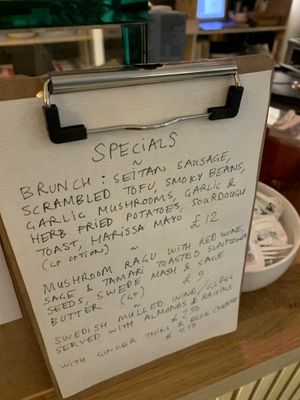 SPECIALS
~
BRUNCH: SEITAN SAUSAGE,
SCRAMBLED TOFU, SMOKY BEANS,
GARLIC MUSHROOMS, GARLIC &
HERB FRIED POTATOES, SOURDOUGH
TOAST, HARISSA MAYO £12
(GF OPTION) ~
MUSHROOM RAGU WITH RED WINE,
SAGE & TAMARI TOASTED SUNFLOWER
SEEDS, SWEDE MASH & SAGE
BUTTER (GF) £9
~
SWEDISH MULLED WINE/GLÖGG
SERVED WITH ALMONDS & RAISINS
£2.50
WITH GINGER THINS & BLUE CHEESE
£4.50